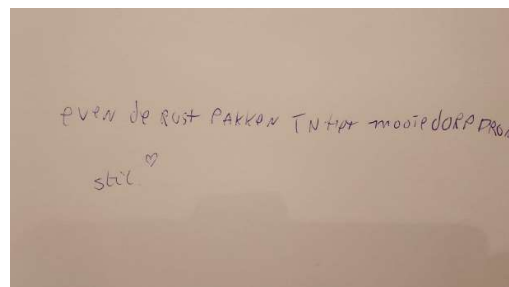 even de Rust PAKKEN IN het mooie dORP DRON
stil ♡